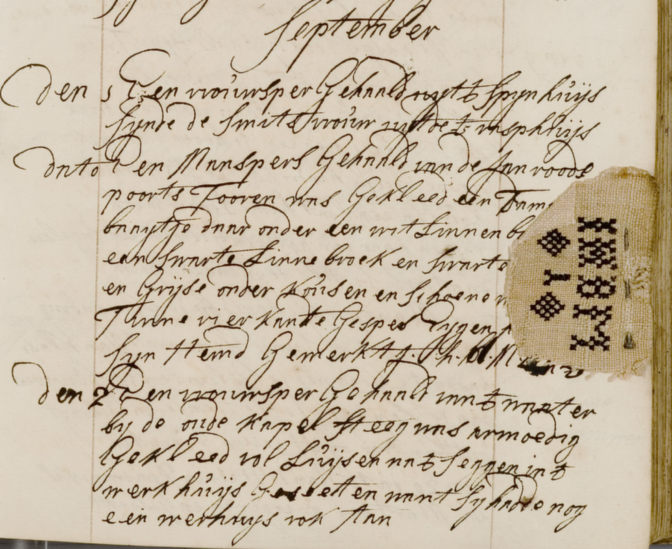 September
Den 5 Een vrouwsper Gehaald uyt t Spynhuys
synde de Smits vrouw uyt de t: rasphuys
Dato Een Manspers Gehaald van de Jan roode
poorts Tooren was Gekleed een
baaytje daar onder een wit Linnen
een swarte Linne broek en swarte
en Gryse onder kousen en schoenen
Tinne vierkante Gespes
syn Hemd Gemerkt
Den 2 Een vrouwsper Gehaald uyt t water
by de oude kapel steeg was armoedig
Gekleed vol Luysen na t seggen in t
werkhuys Geseeten want sy hadde nog
een werhuys rok Aan